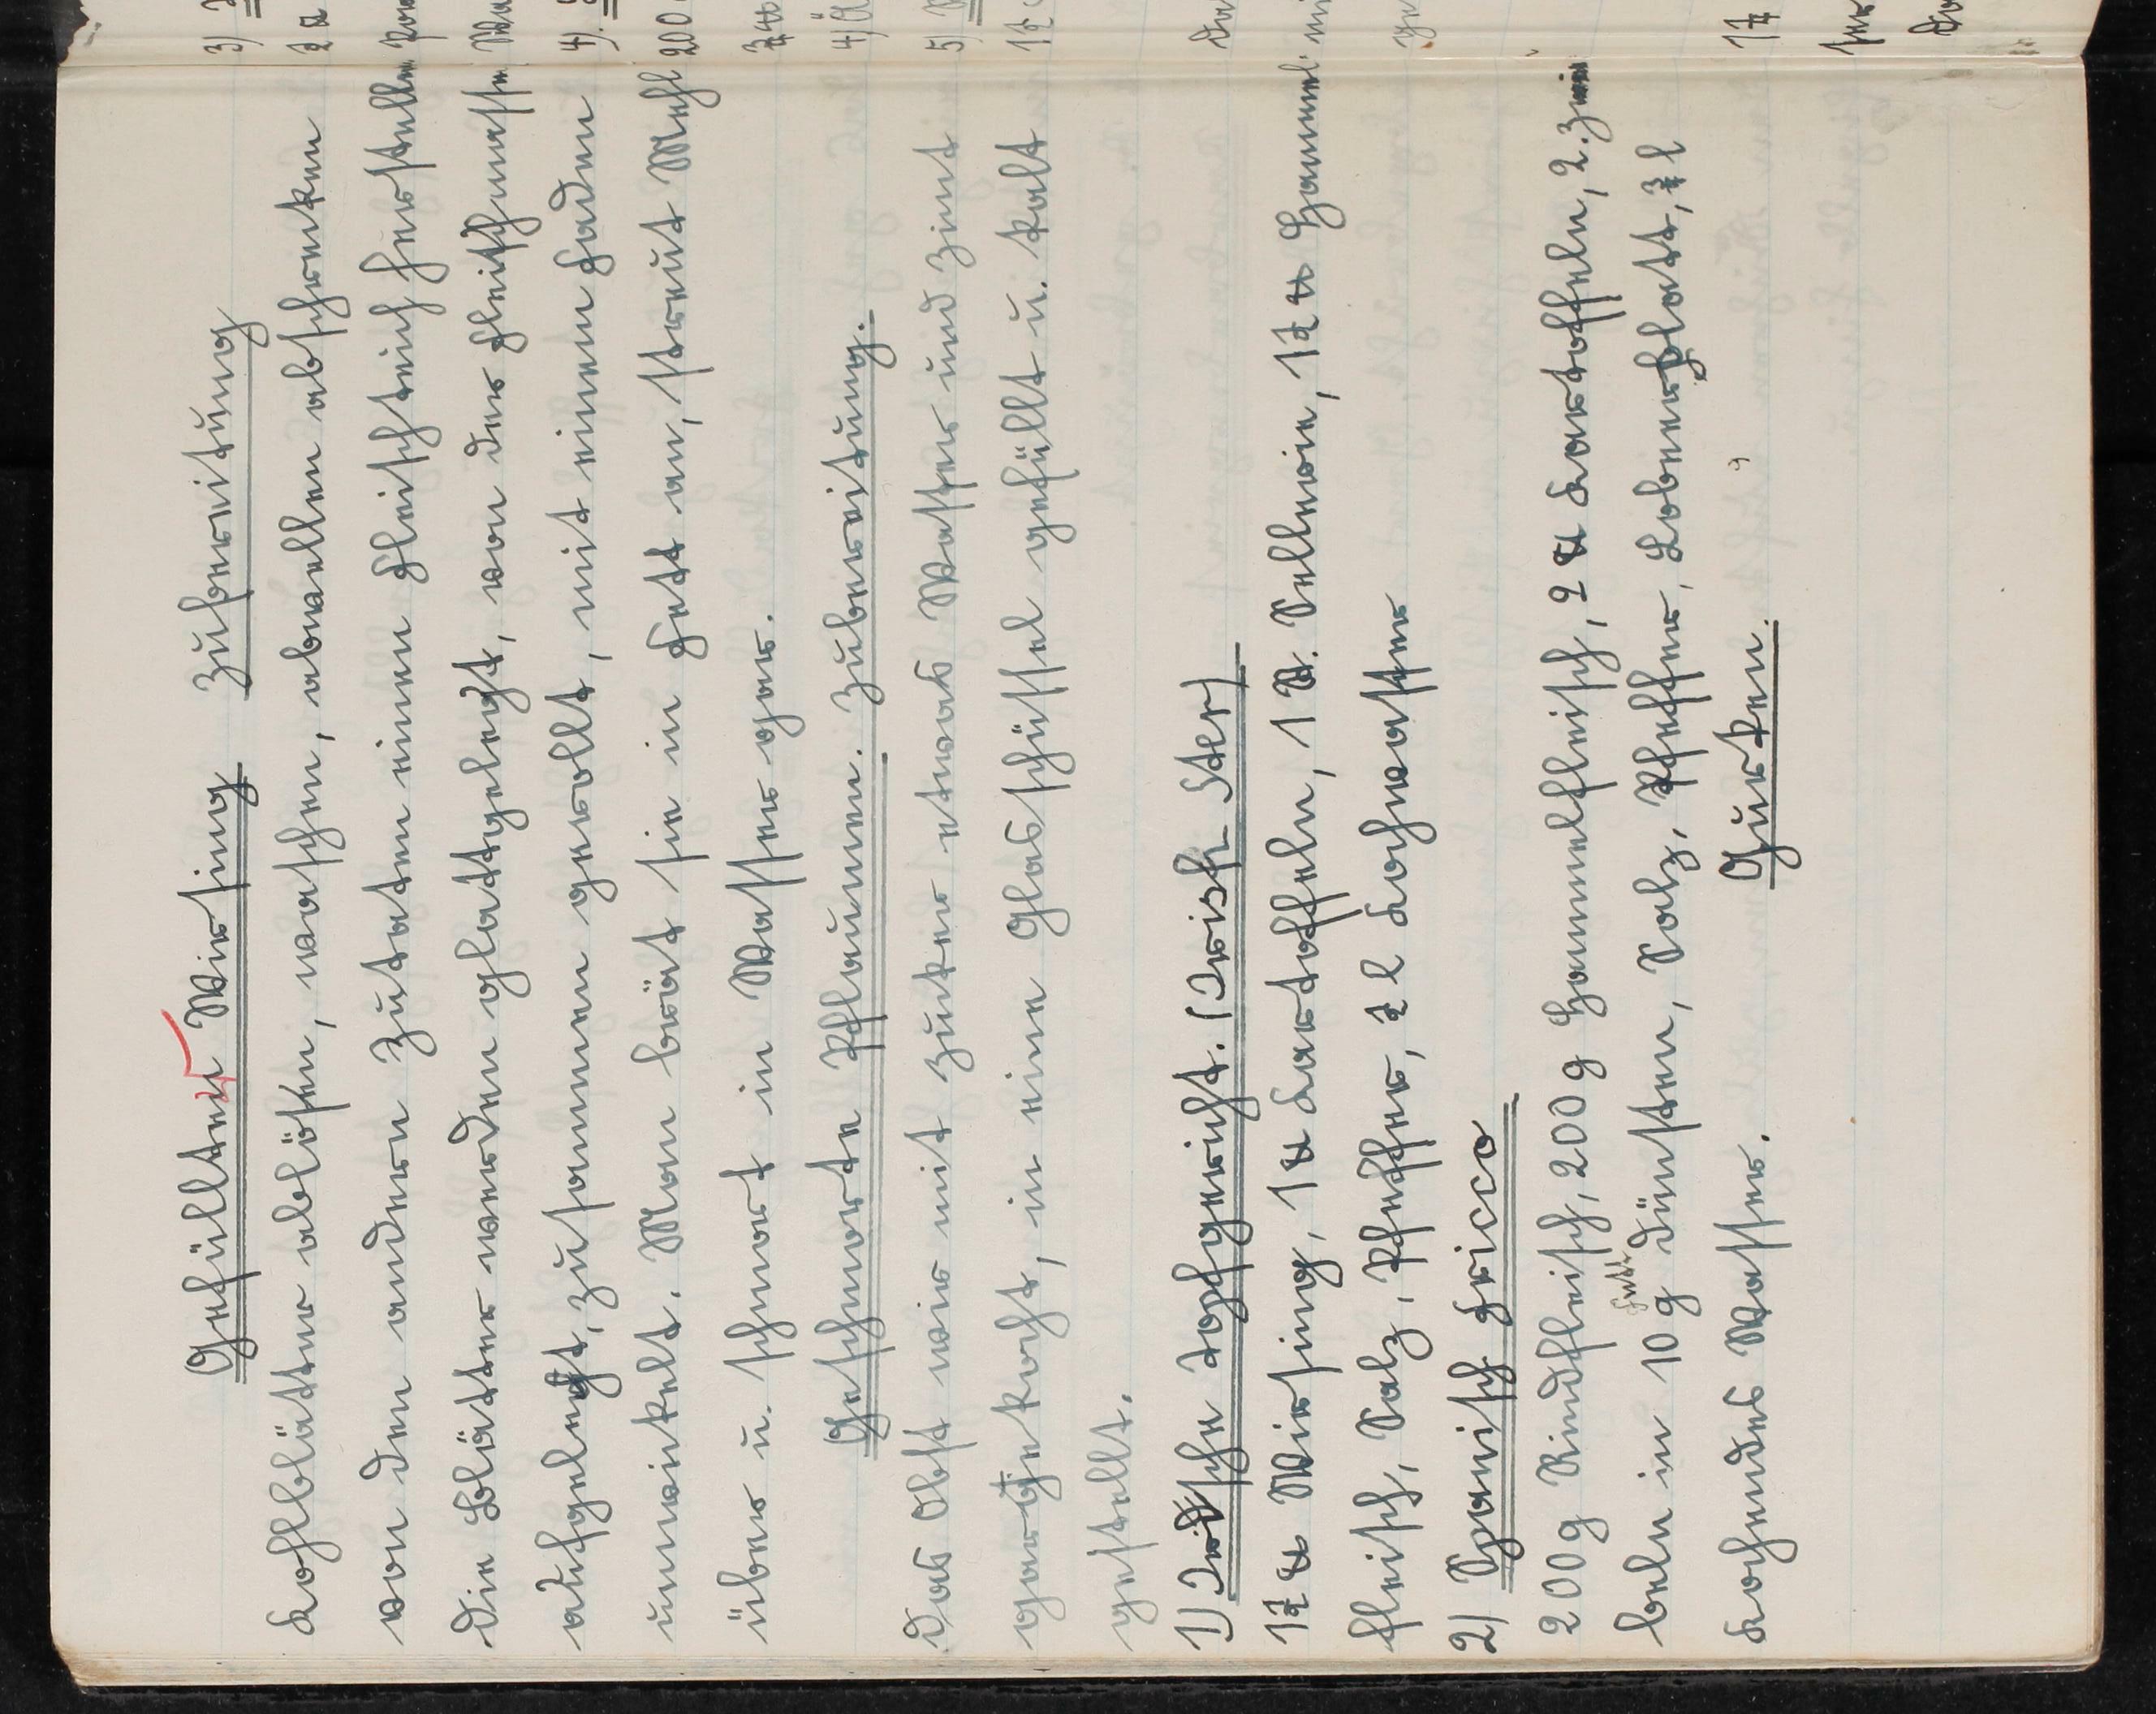 Gefüllter Wirsing Zubereitung
Kohlblätter ablösen, waschen, abwellen abschrecken
von den andern Zutaten einen Fleischteich herstellen
Die Blätter werden glattgelegt, von der Fleischmasse
aufgelegt, zusammen gerollt, mit einem Faden
umwickelt. Man brät sie in Fett an, streut Mehl
über u. schmort in Wasser gar.
Geschmorte Pflaumen. Zubereitung.
Das Obst wir mit Zucker etwas Wasser und Zimt
gar gekocht, in eine Glasschüssel gefüllt u. kalt
gestellt.
1) Irische Topfgericht. (Irisch Ster)
1½ ℔ Wirsing, 1 ℔ Kartoffeln, 1 S. Sellerie, 1½ ℔ Hammel
fleisch, Salz, Pfeffer, ½ l Kochwasser
2) Spanisch Fricco
200 g Rindfleisch, 200 g Hammelfleisch, 2 ℔ Kartoffeln, 2 Zwie
beln in 10 g Fett dünsten, Salz, Pfeffer, Lobeerblatt, ¾ l
kochendes Wasser.
Gurken.